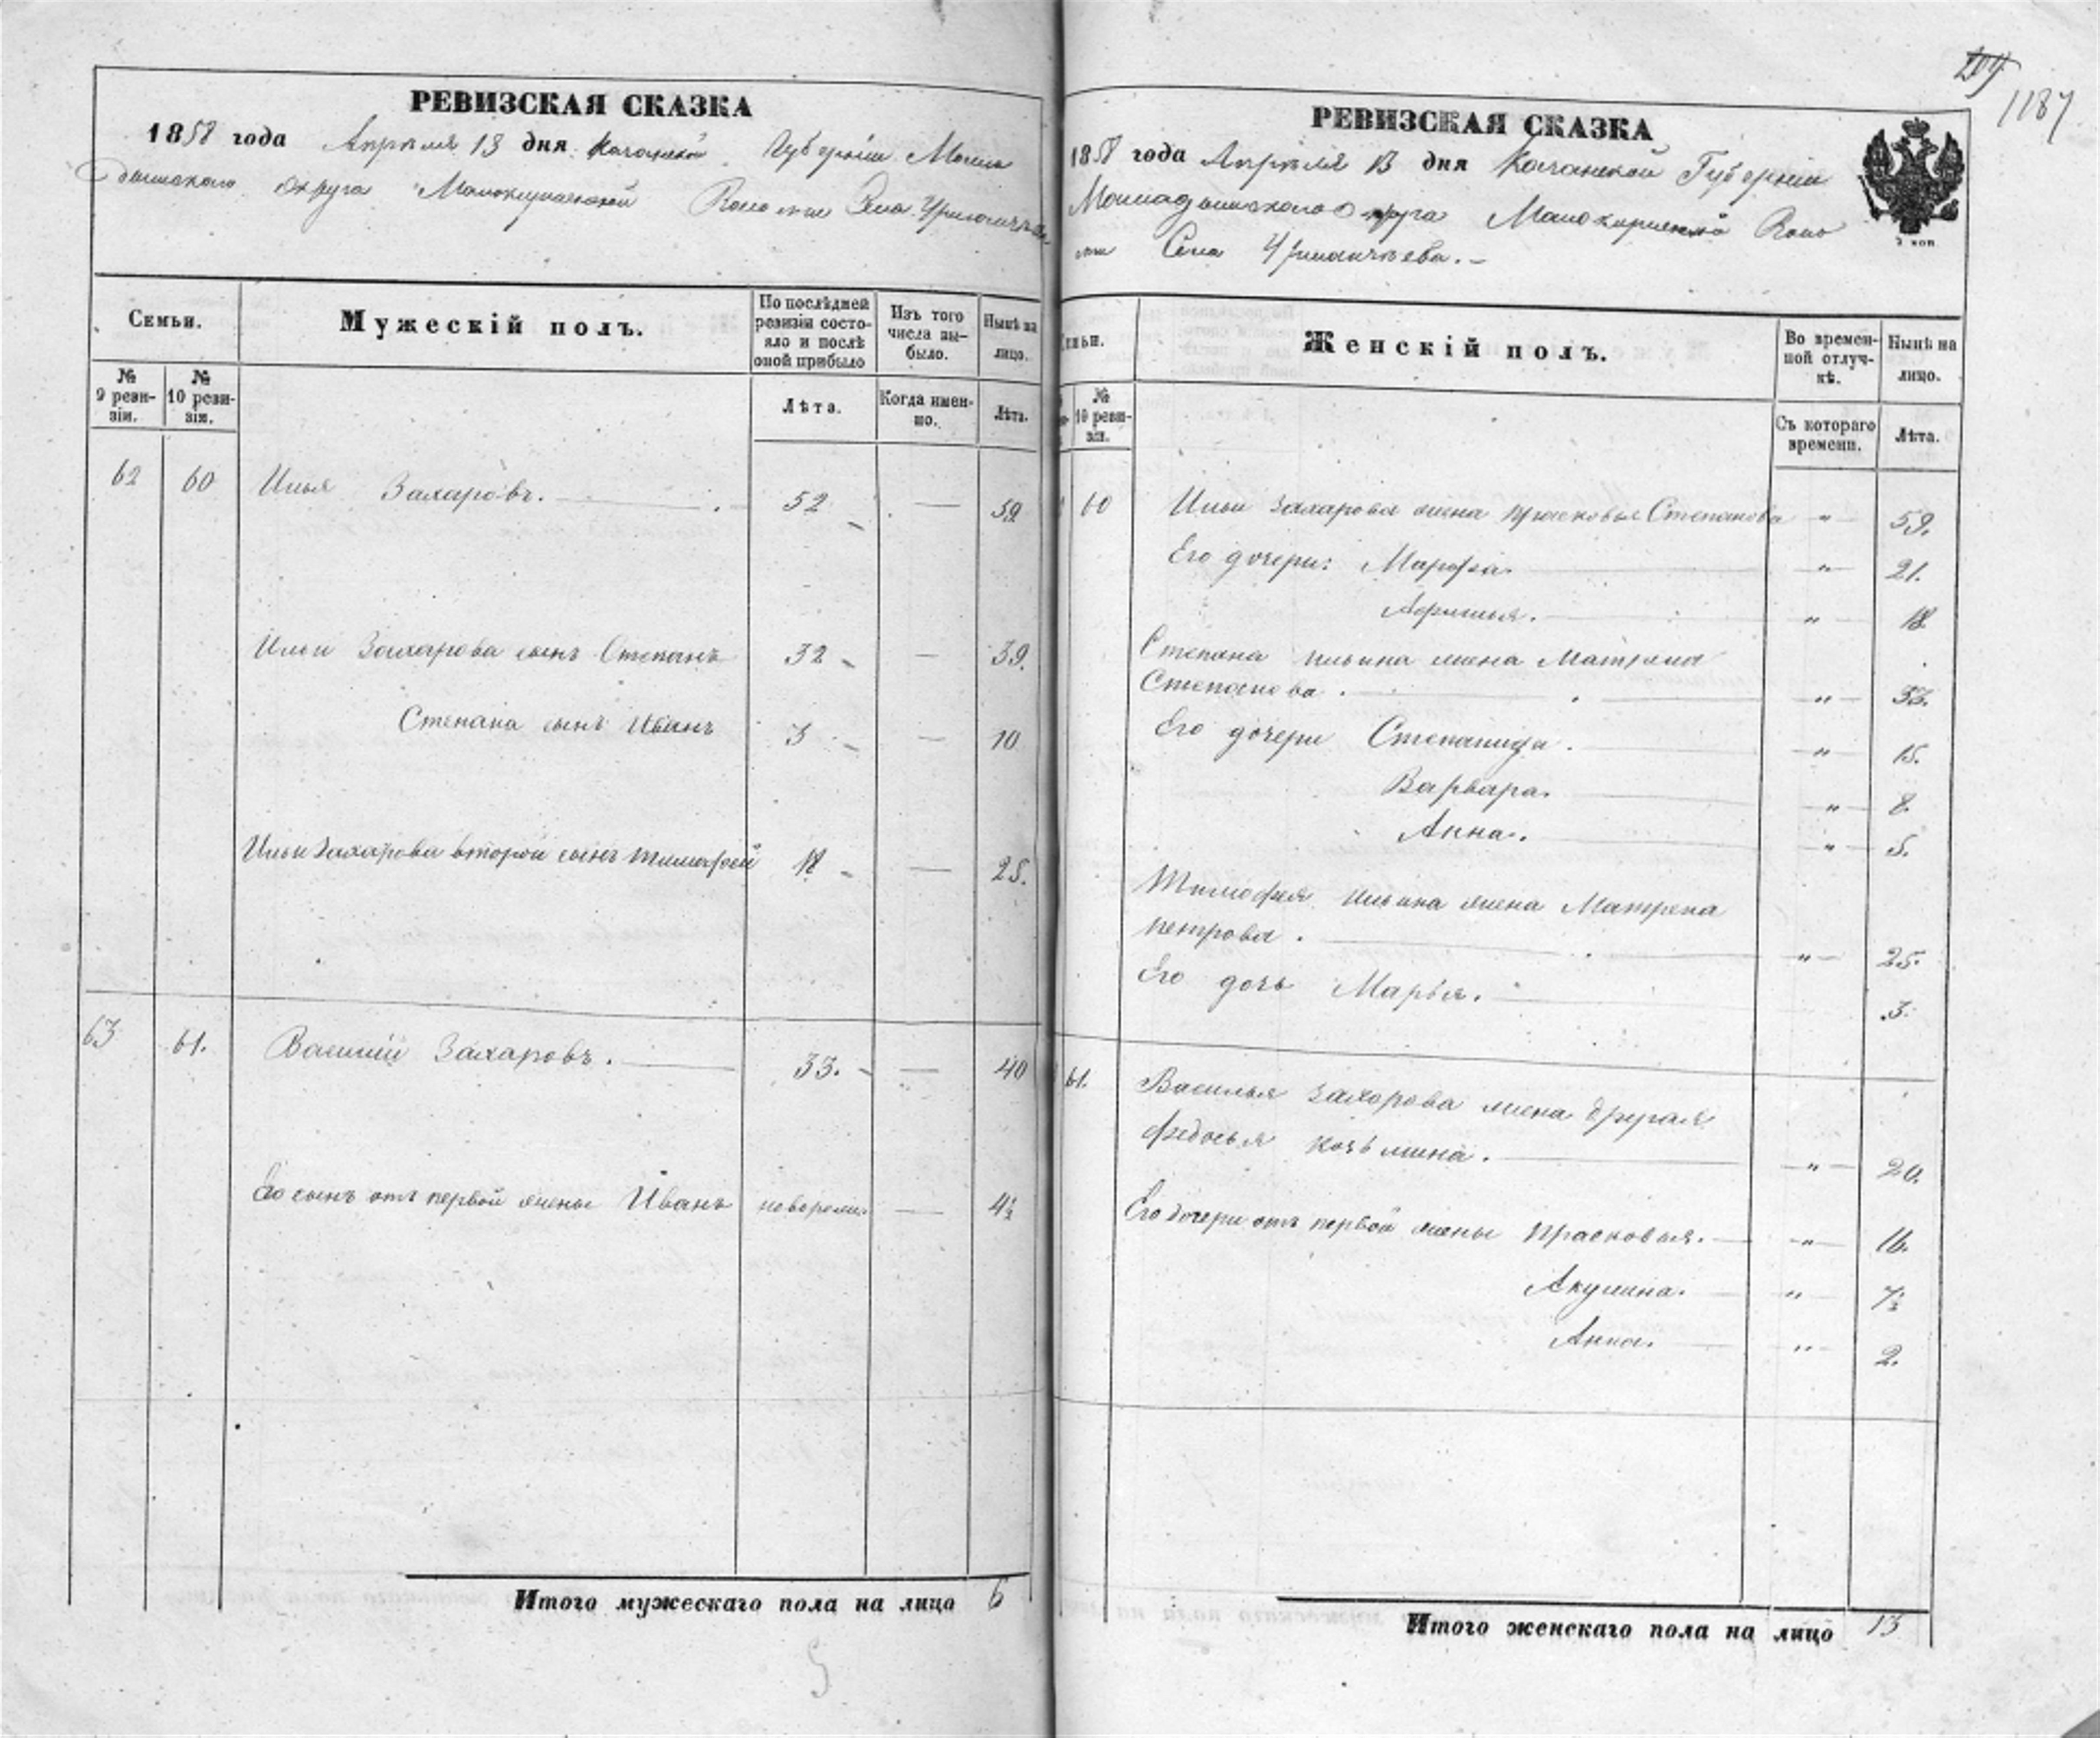 209
1187
РЕВИЗСКАЯ СКАЗКА
1858 года Апреля 13 дня Казанской Губернии Мама
дышскаго округа Волости Села
Семьи.
Мужескій полъ.
По послѣдней ревизіи состо-
яло и послѣ
оной прибыло
Изъ того
числа вы-
было.
Нынѣ на
лицо.
№
9 реви-
зіи.
№
10 реви-
зіи.
Лѣта.
Когда имен-
но.
Лѣта.
62 60 Илья Захаровъ. 52 — 59
Ильи Захарова сынъ Степанъ 32 — 39.
Степана сынъ Иванъ 3 — 10
Ильи Захарова второй сынъ Тимофей 18 — 25.
63 61. Василій Захаровъ. 33. — 40
Его сынъ отъ первой жены Иванъ новорожд. — 4½
Итого мужескаго пола на лицо 6
5
РЕВИЗСКАЯ СКАЗКА
1858 года Апреля 13 дня Казанской Губерніи
Мамадышскаго Округа Воло
сти Села
2 коп
Семьи.
Женскій полъ.
Во времен-
ной отлуч-
кѣ.
Нынѣ на
лицо.
№
10 реви-
зіи.
Съ котораго
времени.
Лѣта.
60 Ильи Захарова жена Прасковья Степанова " — 59.
Его дочери: Марфа. " — 21.
" 18
Степана Ильина жена Матрена
Степанова. " — 33.
Его дочери Степанида. " — 15.
Варвара. — " — 8.
Анна. " — 5.
Тимофея Ильина жена Матрена
Петрова. " — 25.
Его дочь Марья. 3.
61. Василья Захарова жена другая
Федосья Козьмина. — " — 20.
Его дочери отъ первой жены Прасковья. — " — 16.
Акулина. " 7½
Анна. " — 2.
Итого женскаго пола на лицо 13